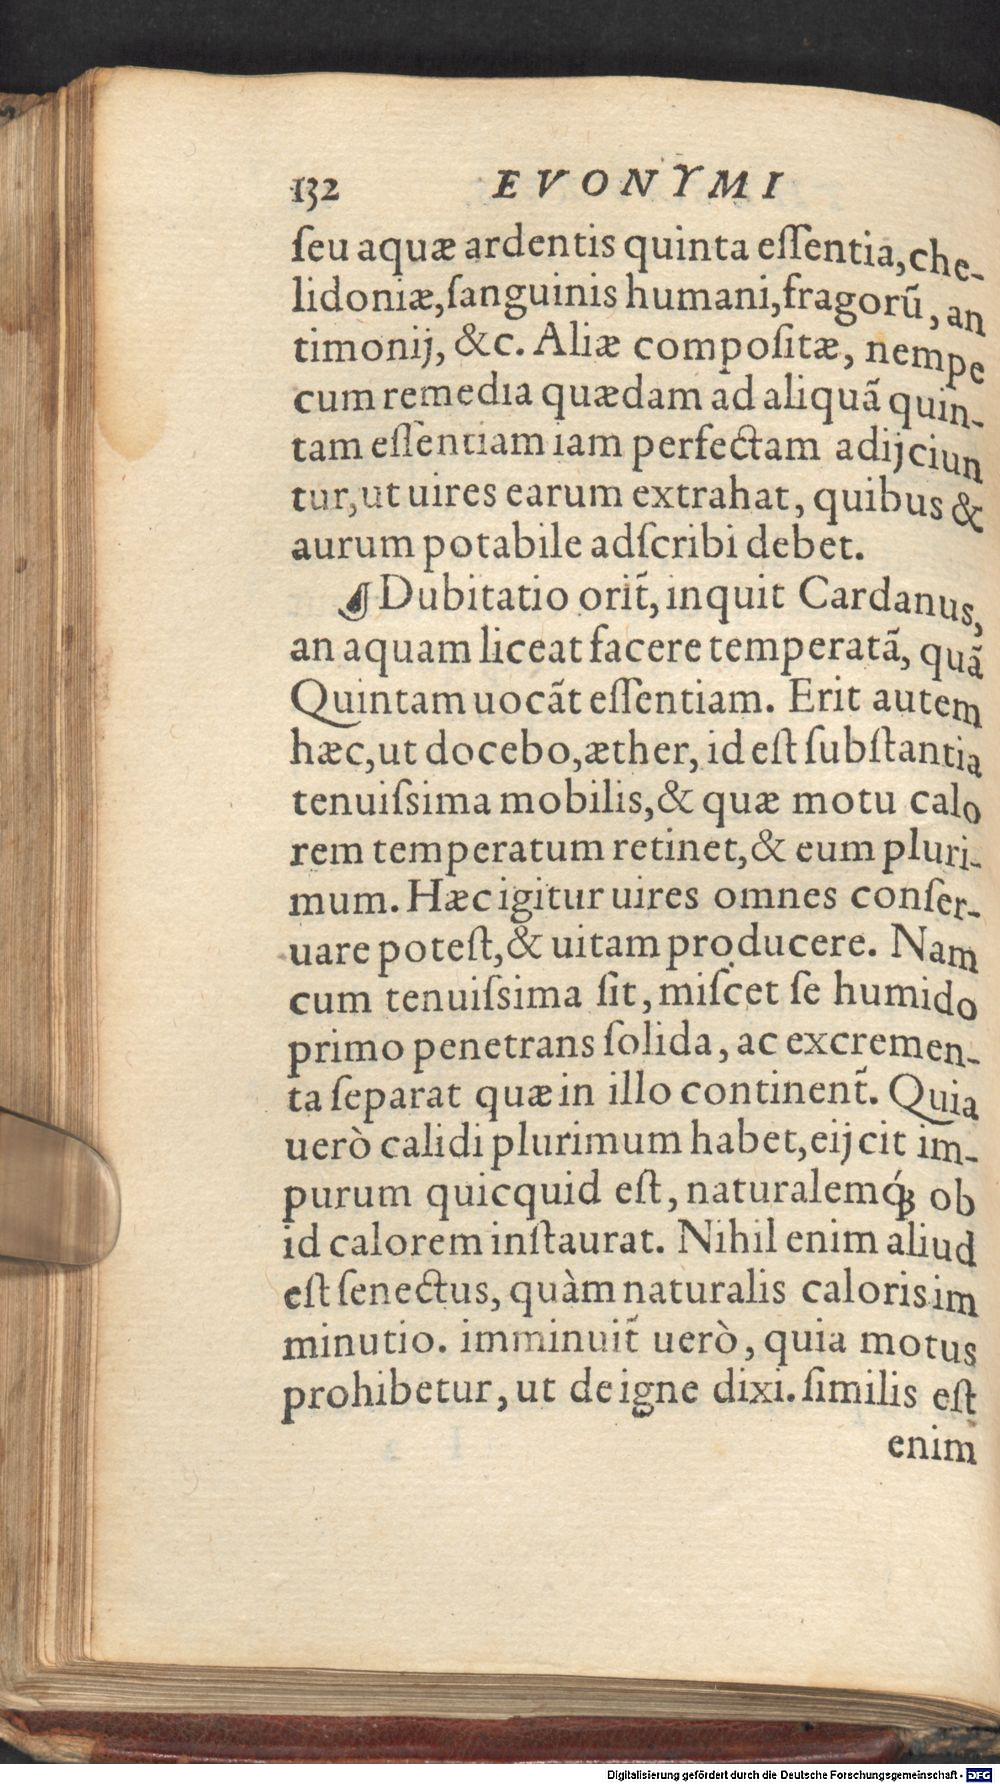 132 EVONYMI
ſeu aquæ ardentis quinta eſſentia, che-
lidoniæ, ſanguinis humani, fragorũ, an
timonij, &c. Aliæ compoſitæ, nempe
cum remedia quædam ad aliquã quin-
tam eſſentiam iam perfectam adijciun
tur, ut uires earum extrahat, quibus &
aurum potabile adſcribi debet.
☙ Dubitatio orit̃, inquit Cardanus,
an aquam liceat facere temperatã, quã
Quintam uocãt eſſentiam. Erit autem
hæc, ut docebo, æther, id eſt ſubſtantia
tenuiſsima mobilis, & quæ motu calo
rem temperatum retinet, & eum pluri-
mum. Hæc igitur uires omnes conſer-
uare poteſt, & uitam producere. Nam
cum tenuiſsima ſit, miſcet ſe humido
primo penetrans ſolida, ac excremen-
ta ſeparat quæ in illo continent̃. Quia
uerò calidi plurimum habet, eijcit im-
purum quicquid eſt, naturalemq́ꝫ ob
id calorem inſtaurat. Nihil enim aliud
eſt ſenectus, quàm naturalis caloris im
minutio. imminuit̃ uerò, quia motus
prohibetur, ut de igne dixi. ſimilis eſt
enim
Digitalisierung gefördert durch die Deutsche Forschungsgemeinschaft - DFG